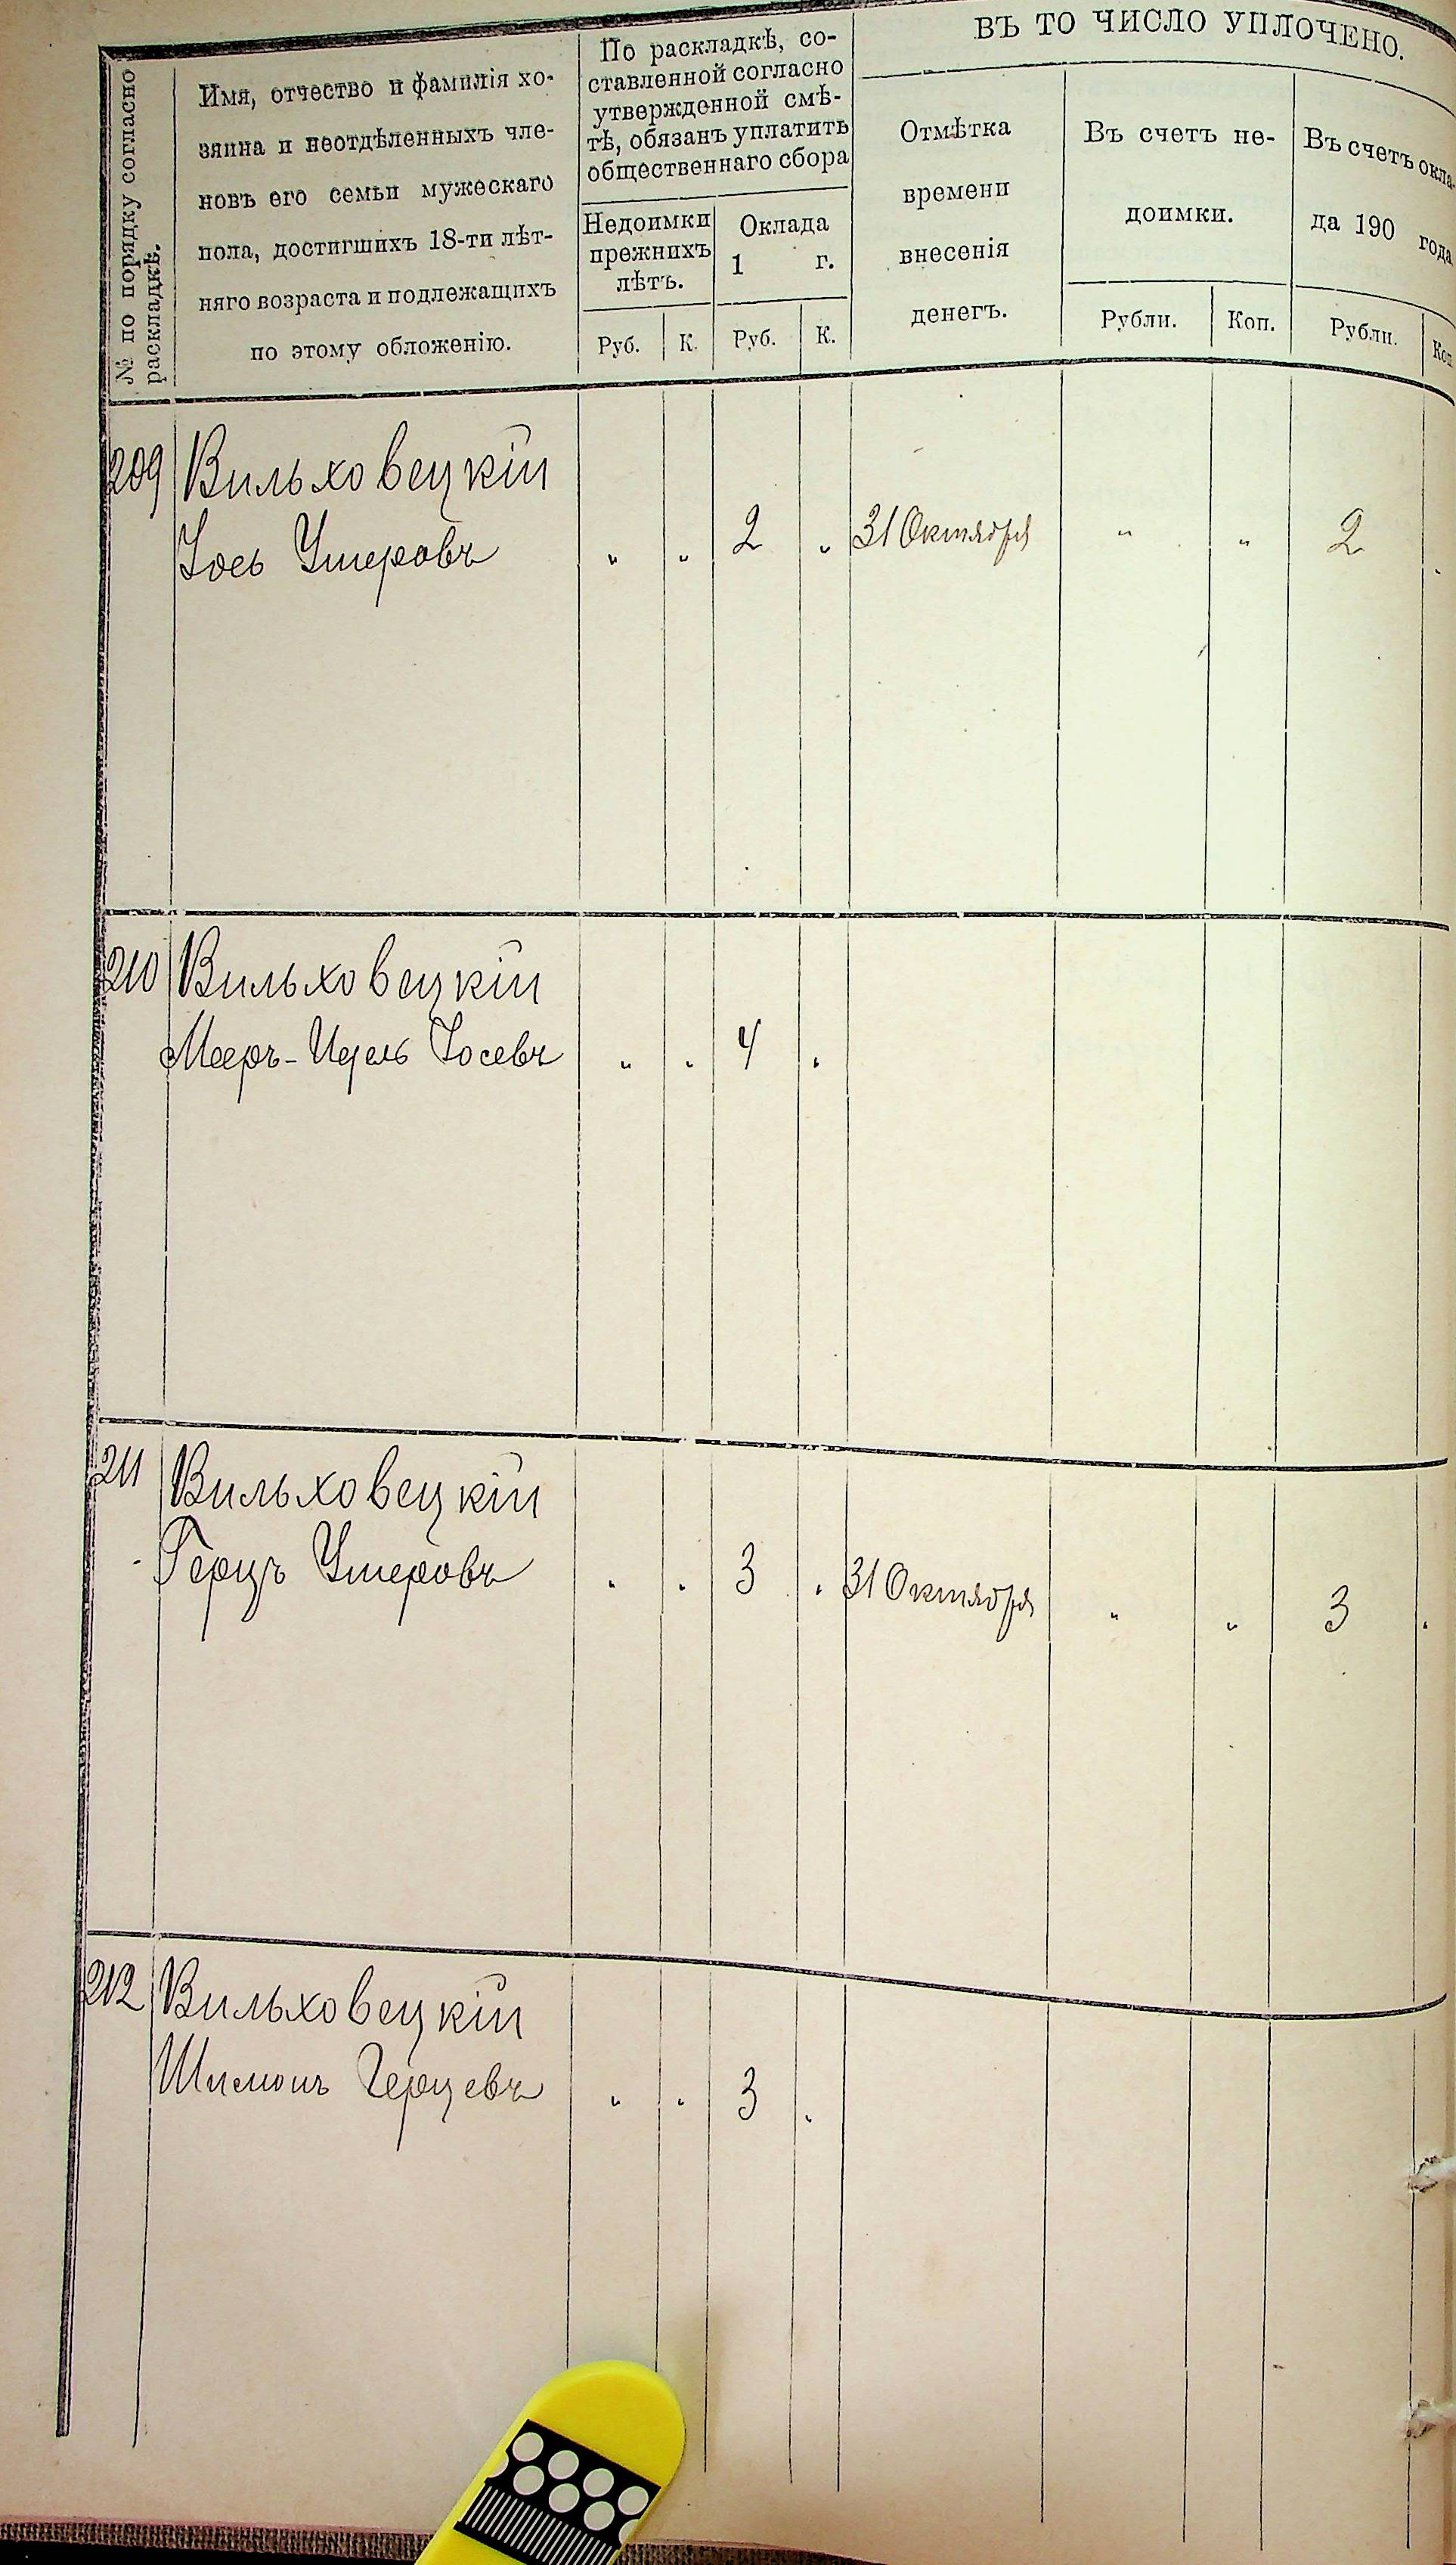 № по порядку согласно
раскладкѣ.
Имя, отчество и фамилія хо-
зяина и неотдѣленныхъ чле-
новъ его семьи мужескаго
пола, достигшихъ 18-ти лѣт-
няго возраста и подлежащихъ
по этому обложенію.
По раскладкѣ, со-
ставленной согласно
утвержденной смѣ-
тѣ, обязанъ уплатить
общественнаго сбора
Недоимки
прежнихъ
лѣтъ.
Оклада
1 г.
Руб. К. Руб. К.
ВЪ ТО ЧИСЛО УПЛОЧЕНО.
Отмѣтка
времени
внесенія
денегъ.
Въ счетъ не-
доимки.
Рубли. Коп.
Въ счетъ окла-
да 190 года
Рубли. Коп
209 Вильховецкій
Іось Умеровъ „ „ 2 „ 31 Октября „ „ 2
210 Вильховецкій
Мееръ-Идель Іосевъ „ „ 4 „
211 Вильховецкій
Герцъ Умеровъ „ „ 3 „ 31 Октября „ „ 3 „
212 Вильховецкій
Шимонъ Герцевъ „ „ 3 „